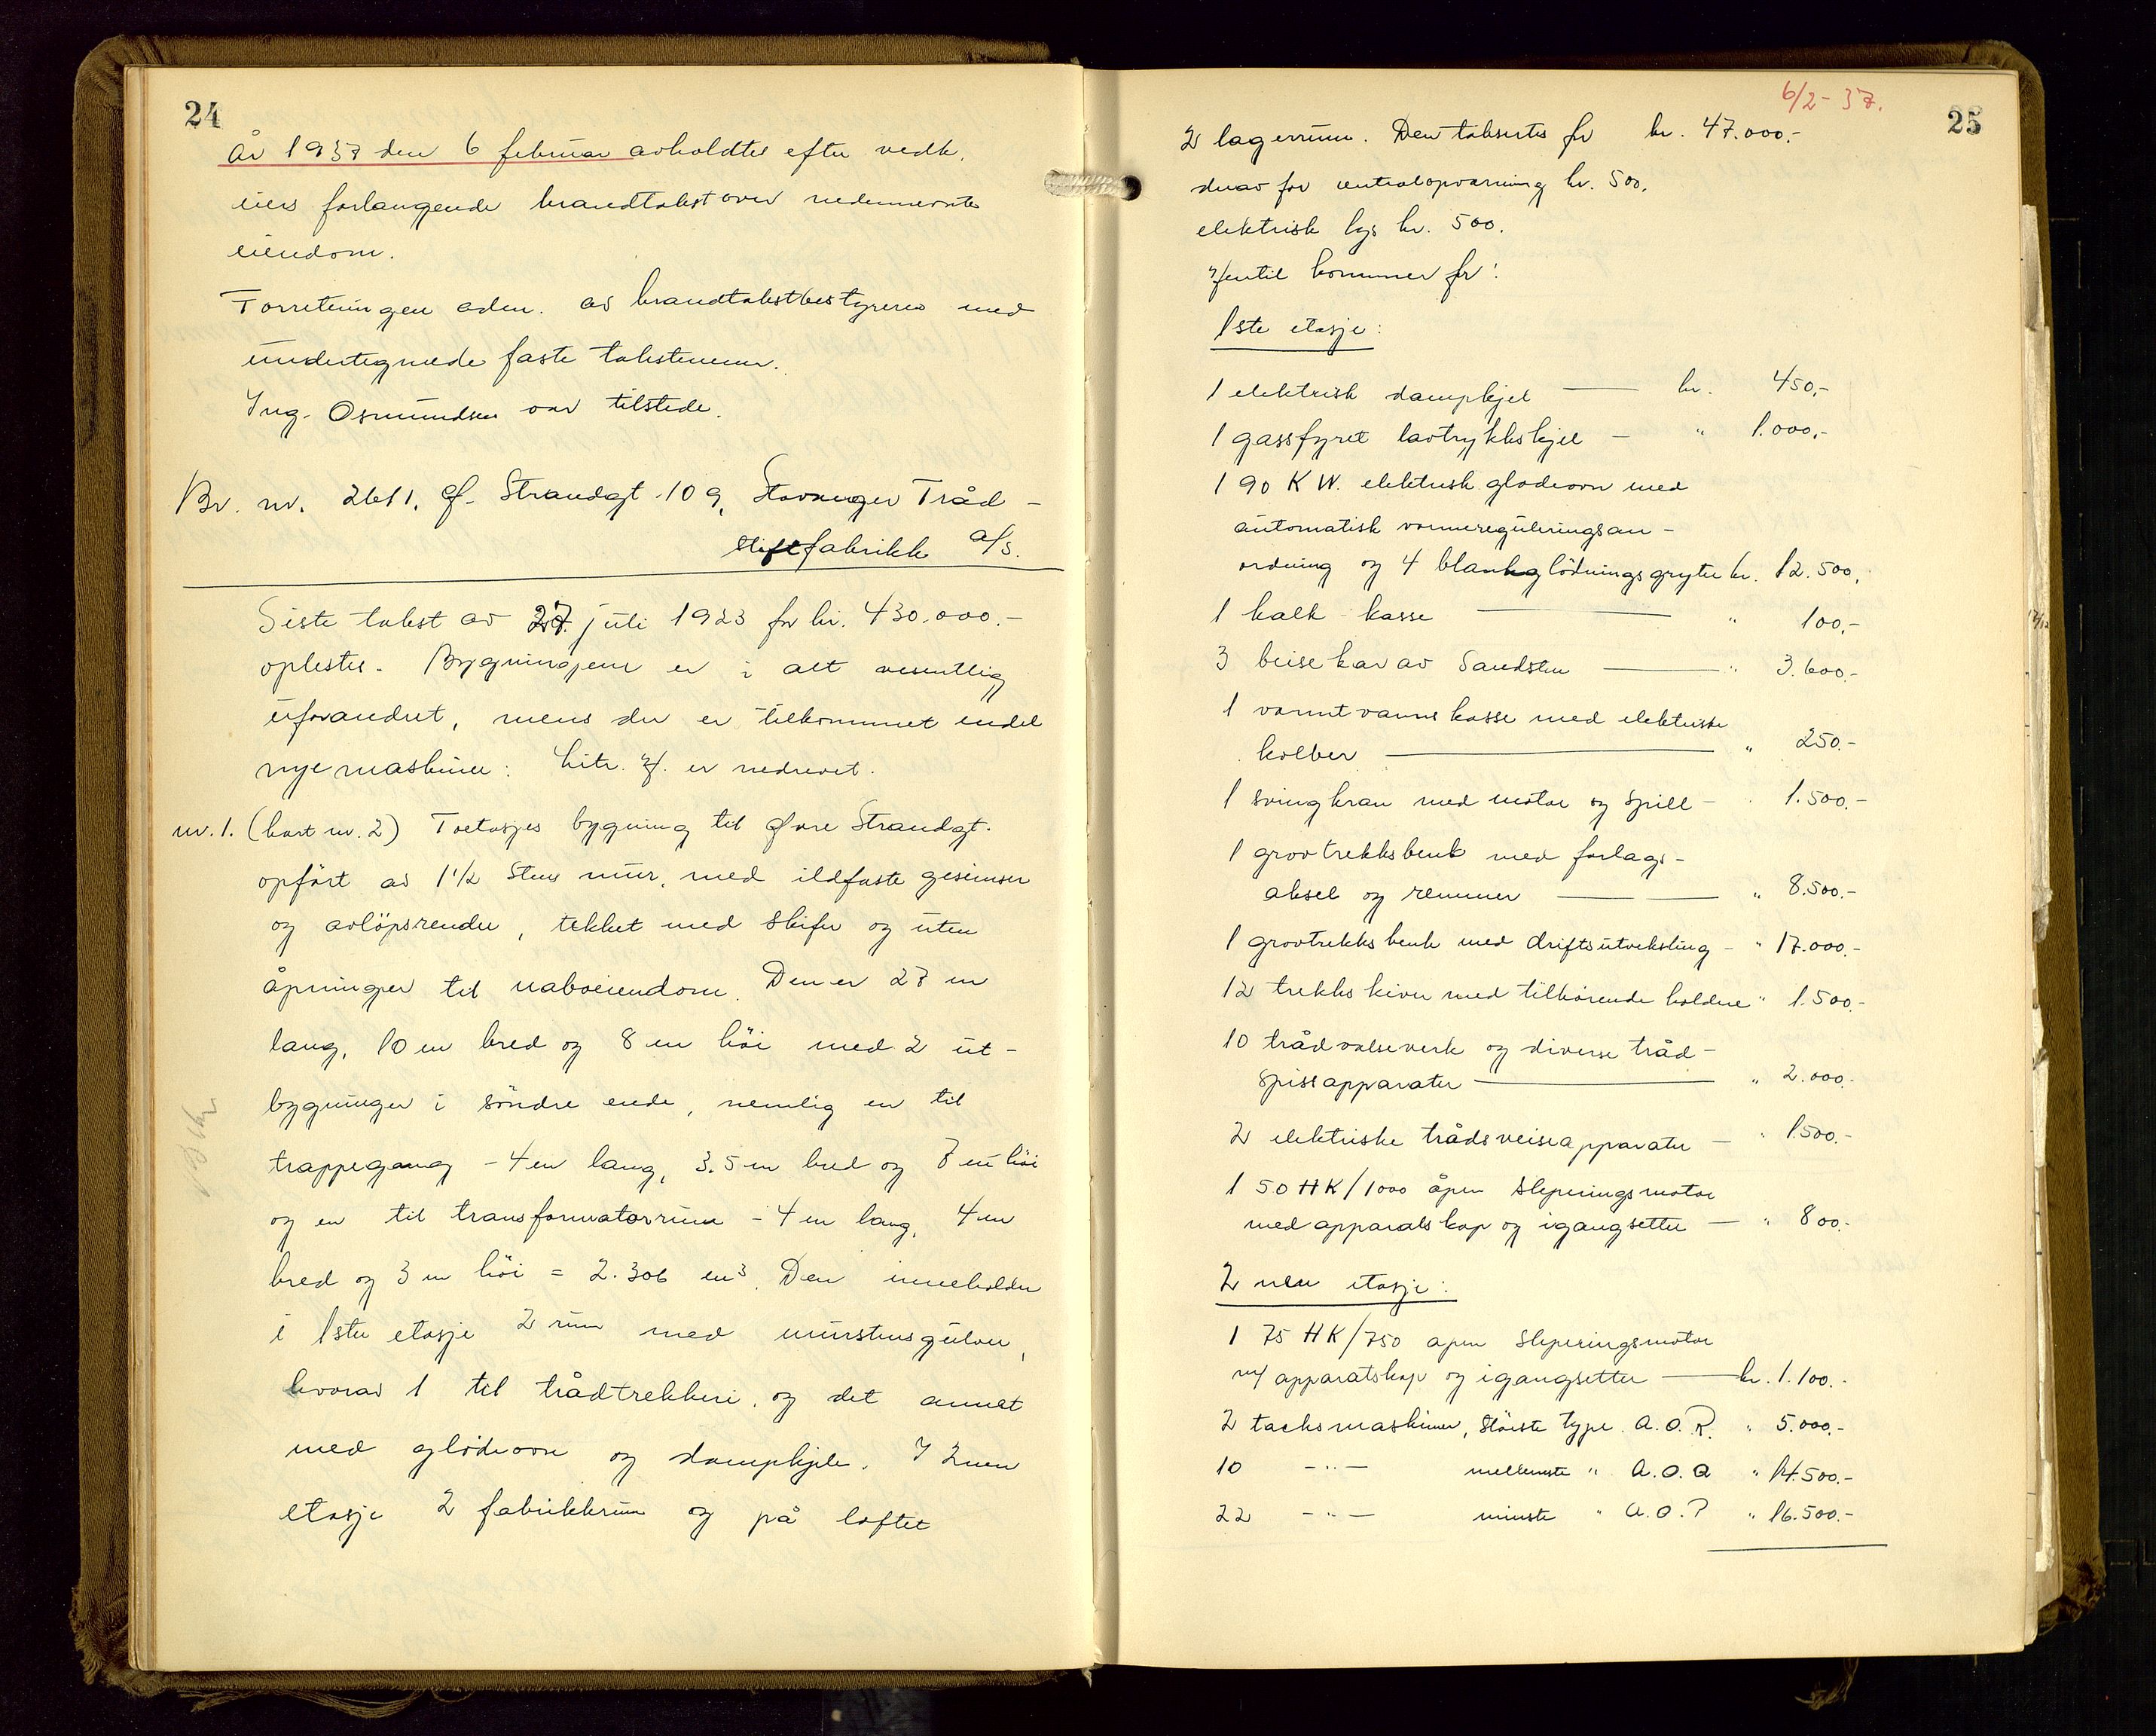 24
År 1937 den 6 februar avholdtes efter vedk.
eiers forlangende brandtakst over nedennevnte
eiendom.
Forretningen adm. av brandtakstbestyreren med
undertegnede faste takstmenn.
Ing. Osmundsen var tilstede.
Br. nr. 2611. Øf. Strandgt. 109, Stavanger Tråd-
stiftfabrikk A/S.
Siste takst av 27. juli 1923 for kr. 430.000.-
oplestes. Bygningene er i alt vesentlig
uforandret, mens der er tilkommet endel
nye maskiner: Litr. er nedrevet.
nr. 1. (kart nr. 2) Toetasjes bygning til Øvre Strandgt.
opført av 1½ Stens mur, med ildfaste gesimser
og avløpsrender, tekket med skifer og uten
åpninger til naboeiendom. Den er 27 m
lang, 10 m bred og 8 m høi med 2 ut-
bygninger i søndre ende, nemlig en til
trappegang - 4 m lang, 3.5 m bred og 7 m høi
og en til transformatorrum - 4 m lang, 4 m
bred og 3 m høi = 2.306 m³. Den inneholder
i 1ste etasje 2 rum med murstensgulver,
hvorav 1 til trådtrekkeri, og det annet
med glødeovn og dampkjele. I 2nen
etasje 2 fabrikkrum og på loftet
6/2-37.
25
2 lagerrum. Den takseres for kr. 47.000.-
derav for centralopvarming kr. 500.
elektrisk lys kr. 500.
Hertil kommer for:
1ste etasje:
1 elektrisk dampkjel — kr. 450,-
1 gassfyret lavtrykkskjel - " 1.000,-
1 90 K W. elektrisk glødeovn med
automatisk varmereguleringsan-
ordning og 4 blankglødningsgryter kr. 12.500,
1 kalk-kasse — " 100,-
3 beisekar av Sandsten — " 3.600.-
1 varmtvannskasse med elektriske
kolber — " 250.-
1 svingkran med motor og spill - " 1.500.-
1 grovtrekksbenk med forlags-
aksel og remmer — — " 8.500.-
1 grovtrekksbenk med driftsutveksling - " 17.000.-
12 trekkskiver med tilhørende holdere " 1.500.-
10 trådvalseverk og diverse tråd-
spissapparater — " 2.000.-
2 elektriske trådsveiseapparater — " 1.500.-
1 50 HK/1000 åpen Sleperingsmotor
med apparatskap og igangsetter — " 800.-
2 nen etasje:
1 75 HK/750 åpen Sleperingsmotor
m/ apparatskap og igangsetter — kr. 1.100.-
2 tacksmaskiner, største type A.O.R. " 5.000.-
10 -"- mellemste " A.O.Q " 14.500.-
22 -"- minste " A.O.P " 16.500.-